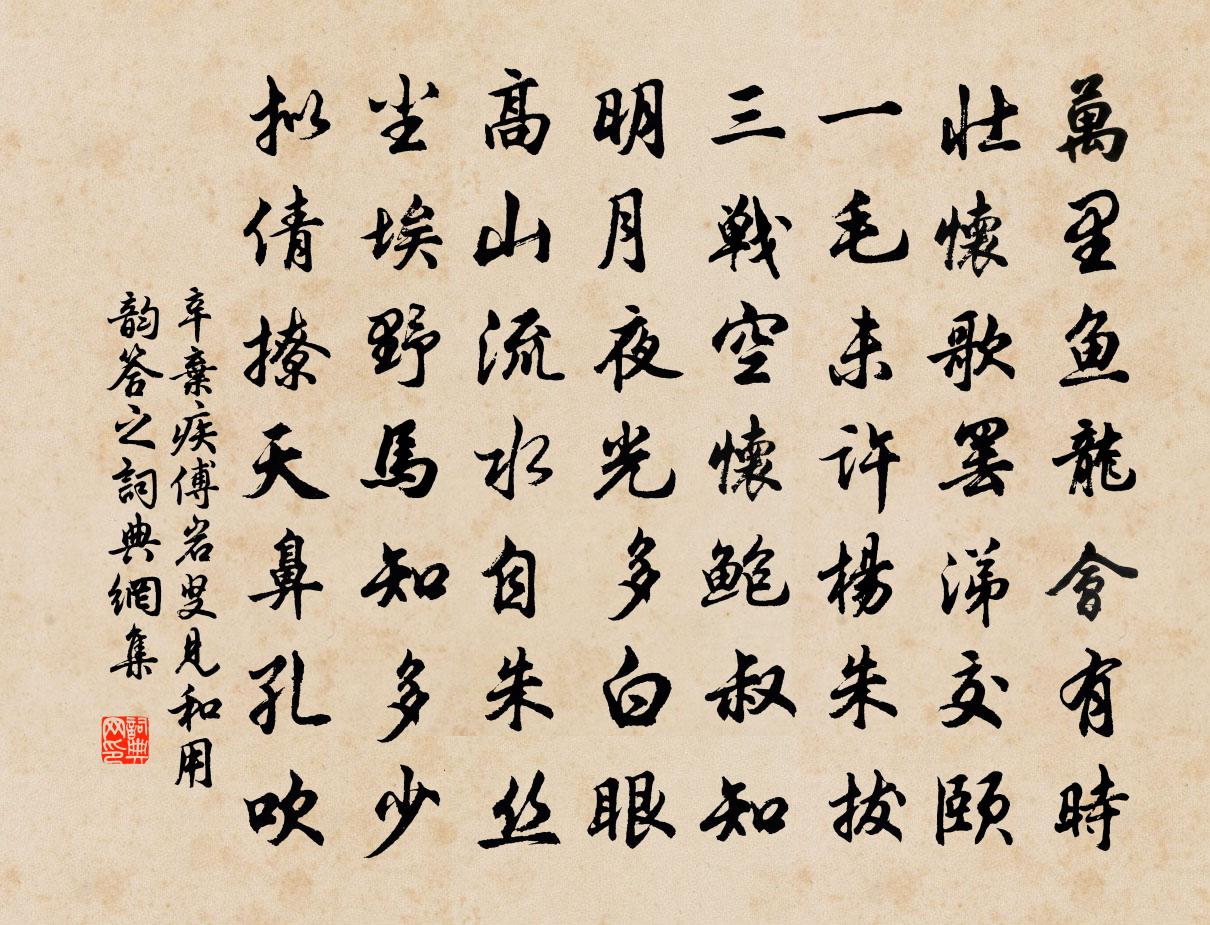 萬里魚龍會有時
壯懷歌罷涕交頤
一毛未許楊朱拔
三戰空懷鮑叔知
明月夜光多白眼
高山流水自朱丝
尘埃野馬知多少
拟倩撩天鼻孔吹
辛棄疾傅岩叟見和用
韵答之詞典網集
詞典
网印